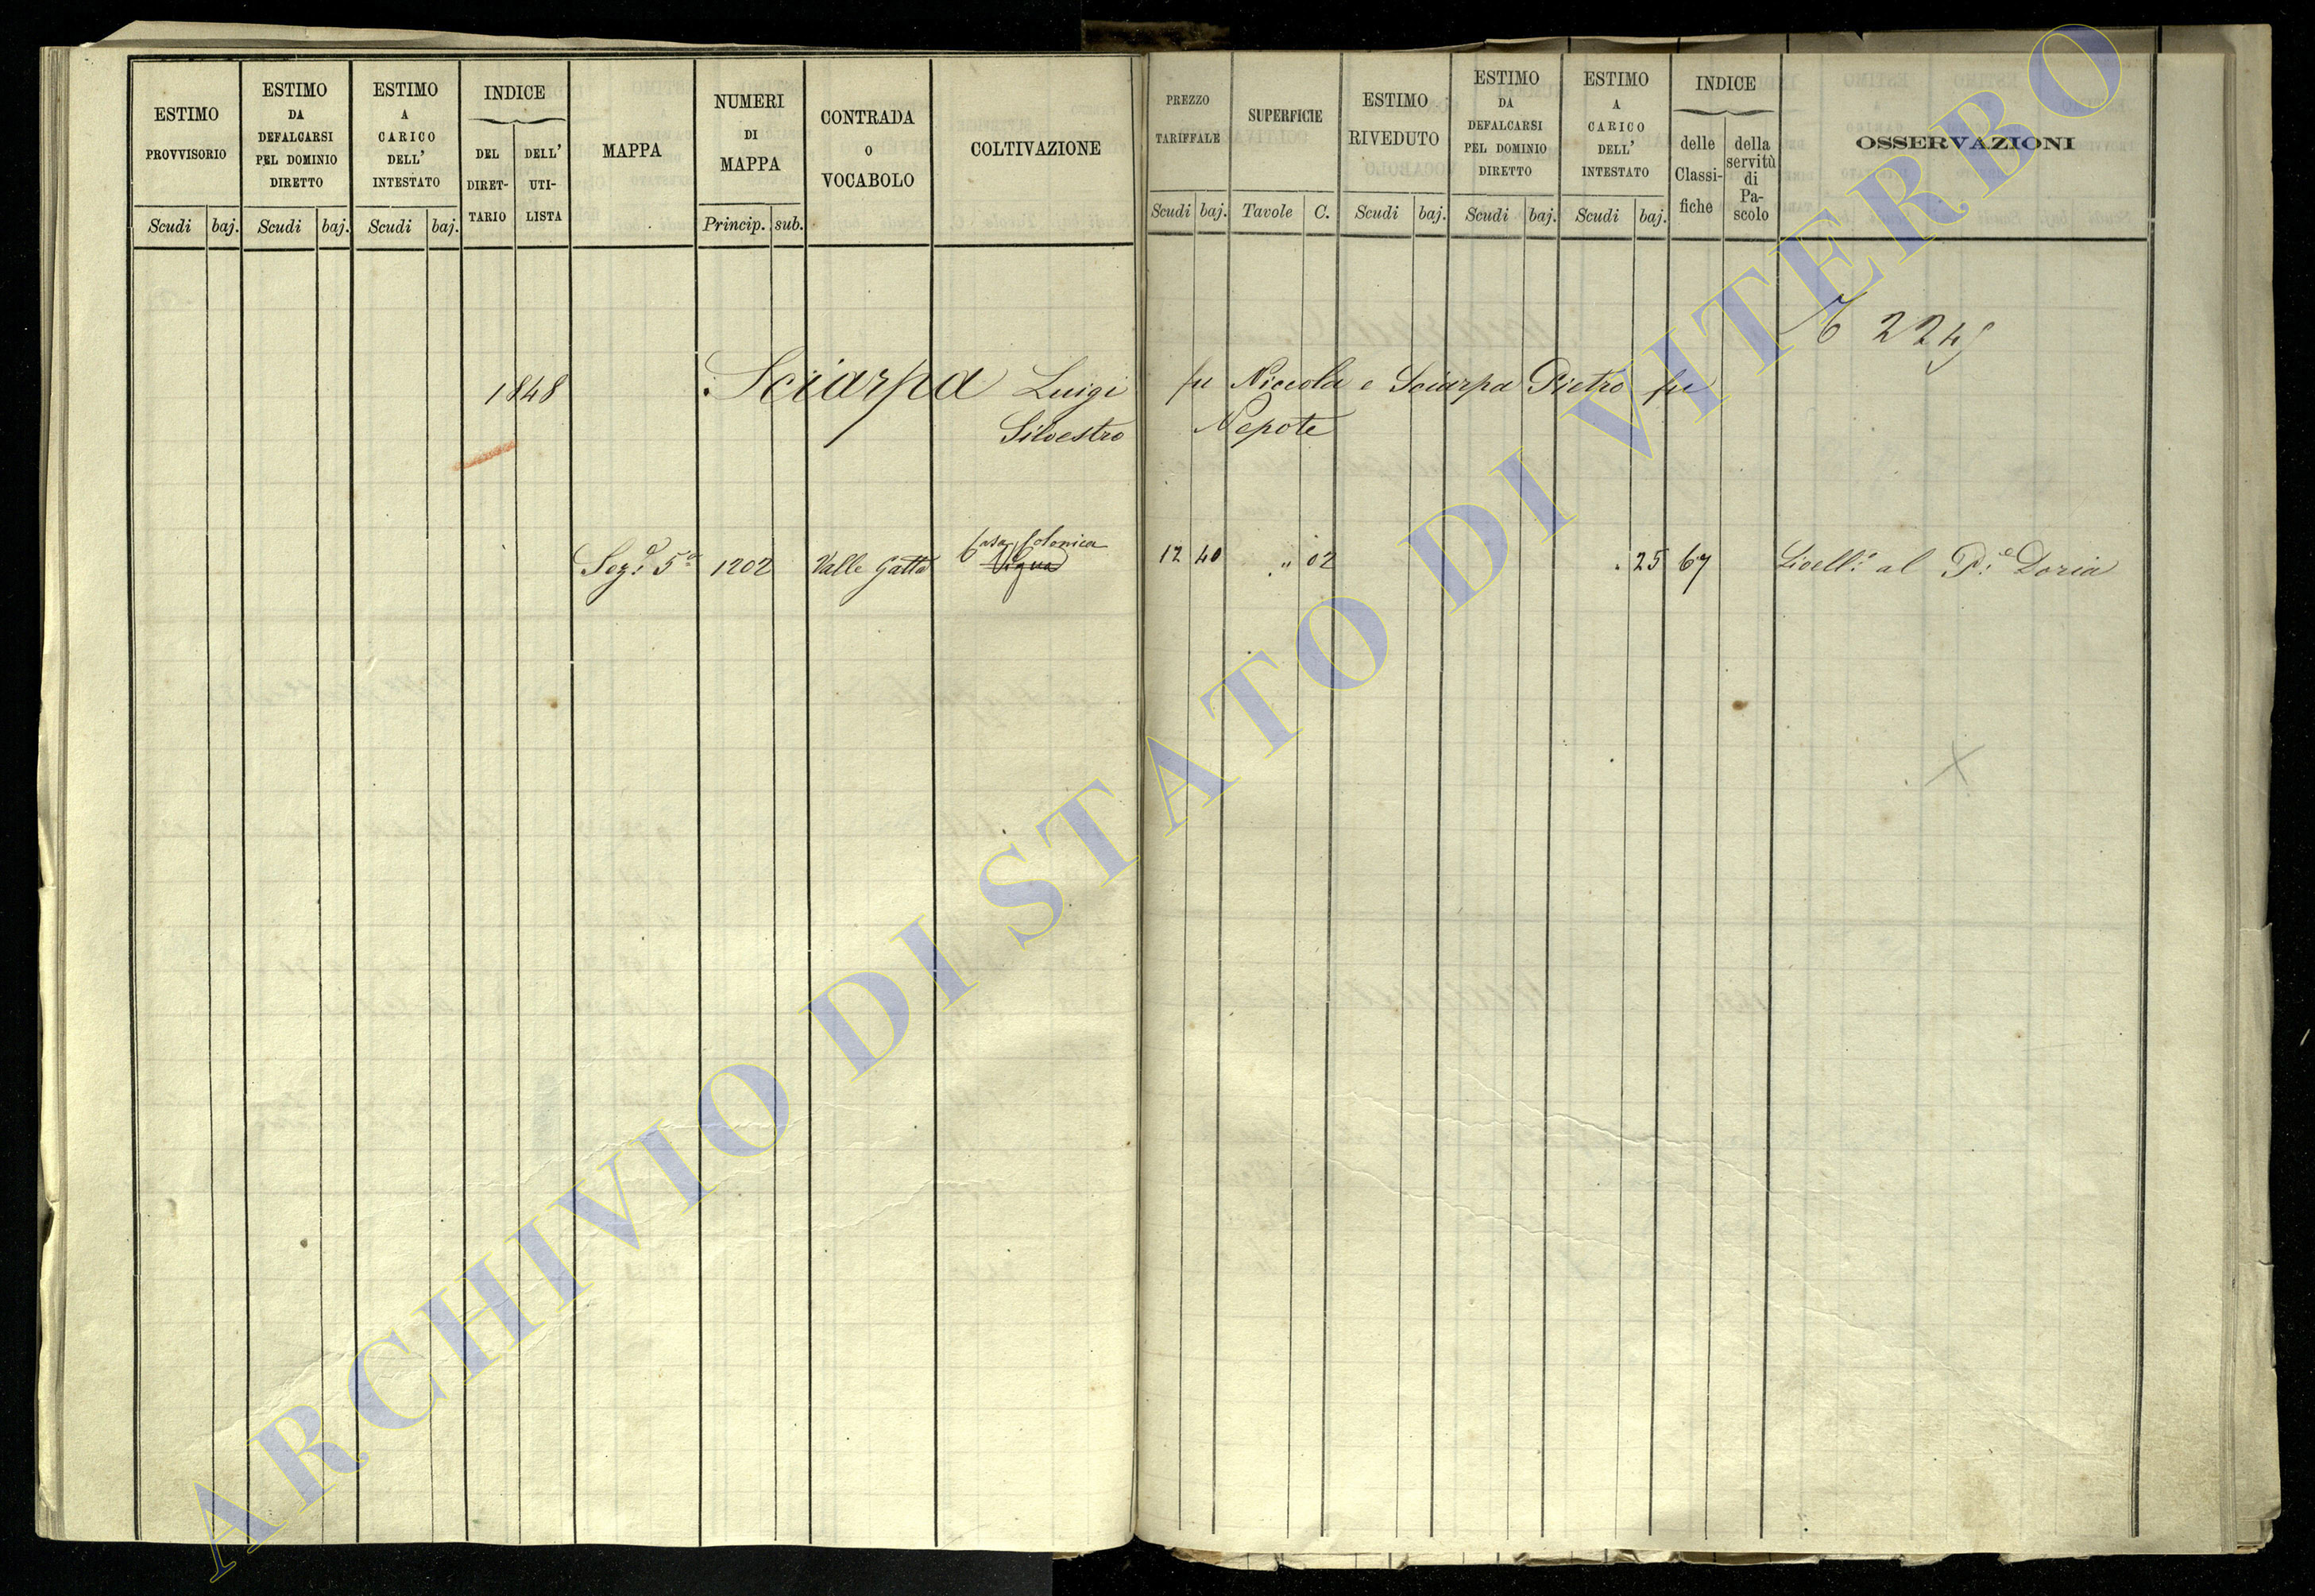 ESTIMO
PROVVISORIO
Scudi baj.
ESTIMO
DA
DEFALCARSI
PEL DOMINIO
DIRETTO
Scudi baj.
ESTIMO
A
CARICO
DELL'
INTESTATO
Scudi baj.
INDICE
DEL
DIRET-
TARIO
DELL'
UTI-
LISTA
MAPPA
NUMERI
DI
MAPPA
Princip. sub.
CONTRADA
O
VOCABOLO
COLTIVAZIONE
PREZZO
TARIFFALE
Scudi baj.
SUPERFICIE
Tavole C.
ESTIMO
RIVEDUTO
Scudi baj.
ESTIMO
DA
DEFALCARSI
PEL DOMINIO
DIRETTO
Scudi baj.
ESTIMO
A
CARICO
DELL'
INTESTATO
Scudi baj.
INDICE
delle
Classi-
fiche
della
servitù
di
Pa-
scolo
OSSERVAZIONI
1848 Sciarpa Luigi fu Niccola e Sciarpa Pietro fu
Silvestro Nepote
Casa Colonica
Sez. 5a 1202 Valle Gatta Vigna 12 40 " 02 . 25 67 Livell.o al P.e Doria
ARCHIVIO DI STATO DI VITERBO